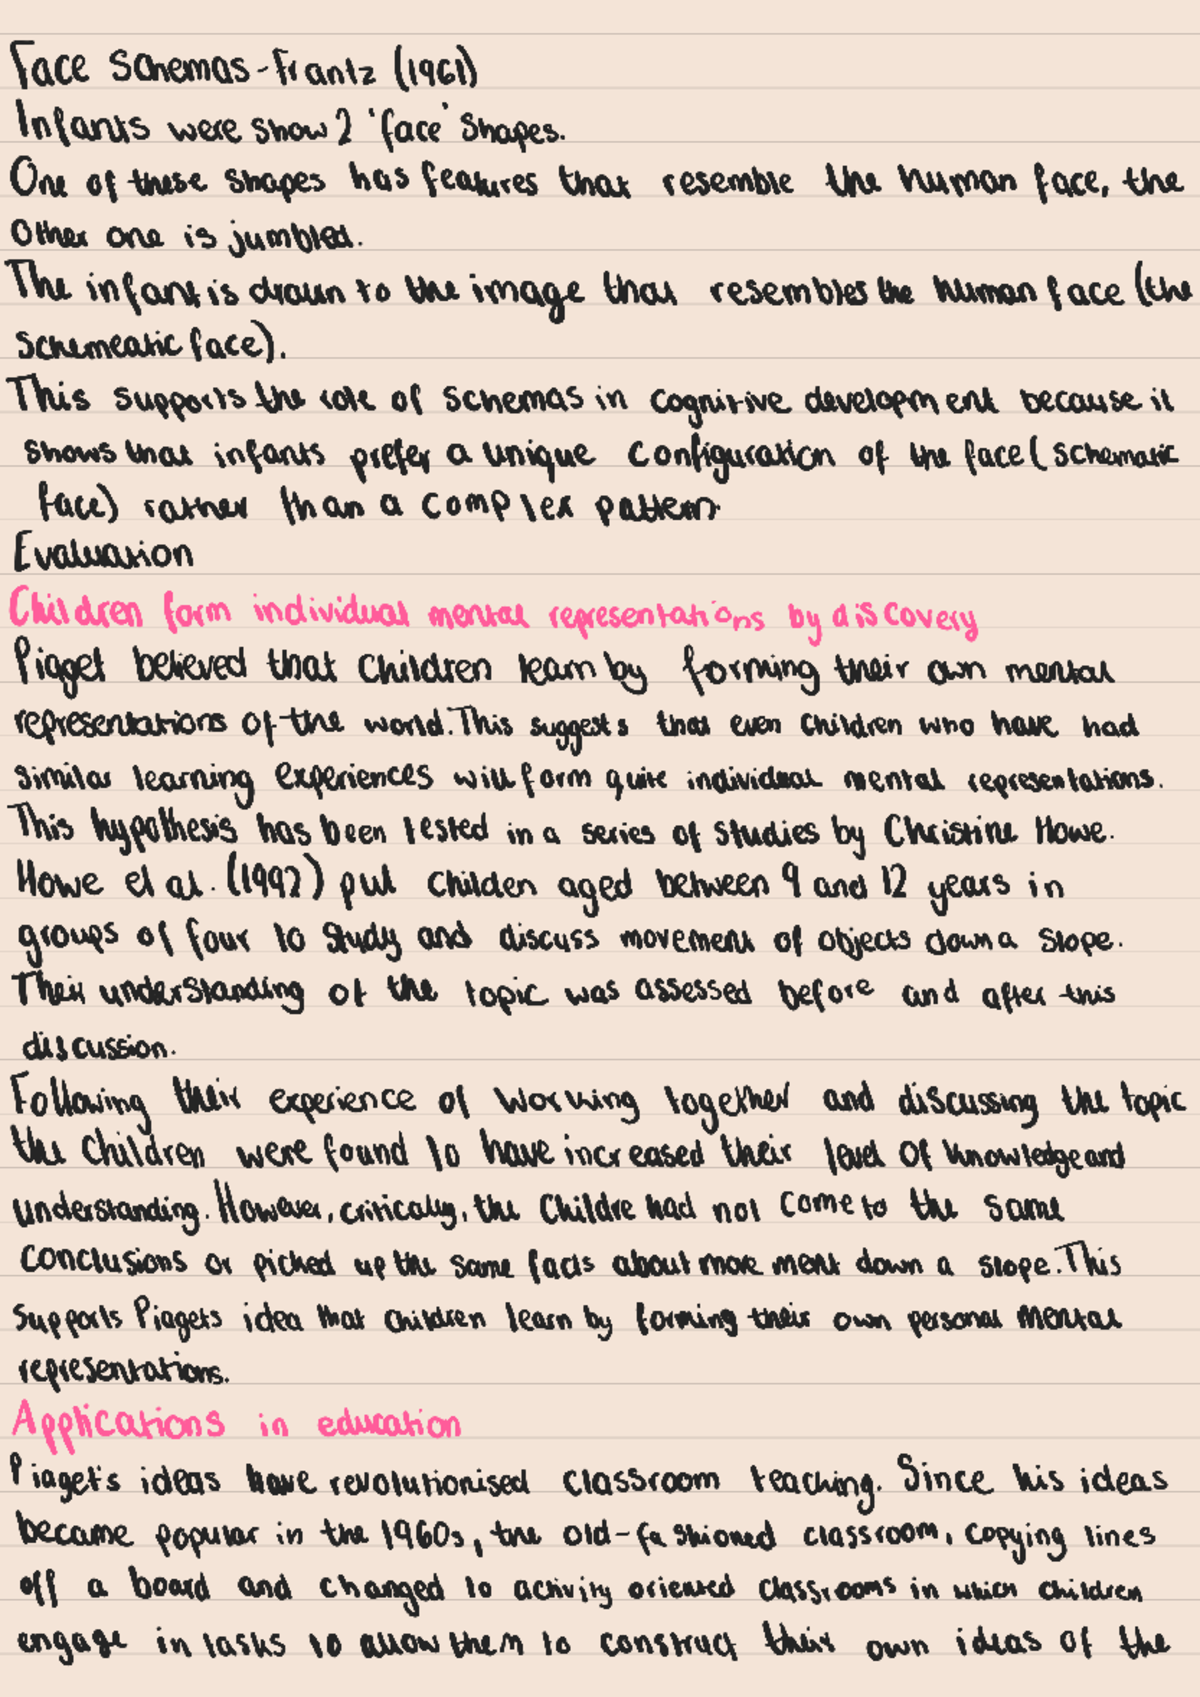 Face Schemas - Frantz (1961)
Infants were show 2 'face' shapes.
One of these shapes has features that resemble the human face, the
other one is jumbled.
The infant is drawn to the image that resembles the human face (the
schemeatic face).
This supports the role of schemas in cognitive development because it
shows that infants prefer a unique configuration of the face (schematic
face) rather than a complex pattern.
Evaluation
Children form individual mental representations by discovery
Piaget believed that children learn by forming their own mental
representations of the world. This suggests that even children who have had
similar learning experiences will form quite individual mental representations.
This hypothesis has been tested in a series of studies by Christine Howe.
Howe et al. (1992) put childen aged between 9 and 12 years in
groups of four to study and discuss movement of objects down a slope.
Their understanding of the topic was assessed before and after this
discussion.
Following their experience of working together and discussing the topic
the children were found to have increased their level of knowledge and
understanding. However, critically, the childre had not come to the same
conclusions or picked up the same facts about movement down a slope. This
supports Piagets idea that children learn by forming their own personal mental
representations.
Applications in education
Piaget's ideas have revolutionised classroom teaching. Since his ideas
became popular in the 1960s, the old-fashioned classroom, copying lines
off a board and changed to activity oriented classrooms in which children
engage in tasks to allow them to construct their own ideas of the